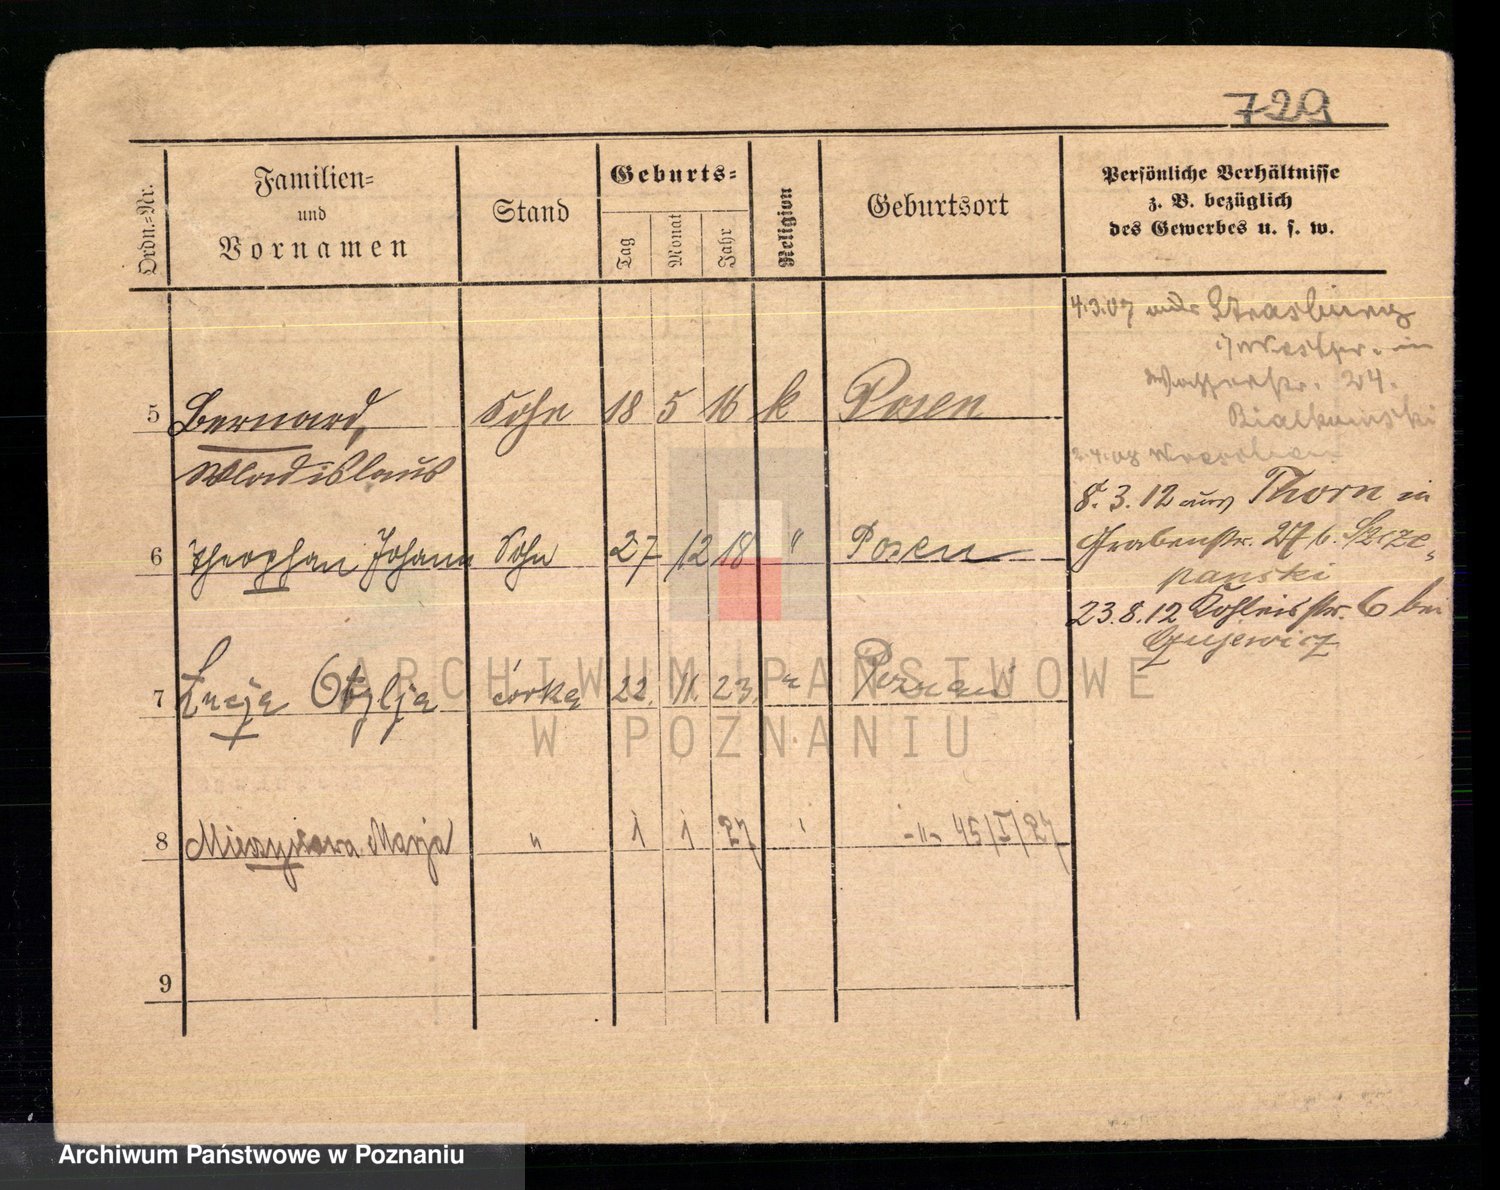 729
Ordn.=Nr.
Familien=
und
Vornamen
Stand
Geburts=
Tag
Monat
Jahr
Religion
Geburtsort
Persönliche Verhältnisse
z. B. bezüglich
des Gewerbes u. s. w.
4.3.07 Strasburg
i/Westpr. in
24.
Bialkowski
5 Bernard, Sohn 18 5 16 k Posen
Wladislaus
8.3.12 aus Thorn in
6 Theophan Johann Sohn 27 12 18 " Posen
Grabenstr. 27 b. Szcze-
panski
23.8.12 6 bei
7 Łucja Otylja córka 22. 11. 23. " Poznań
8 Mieczysława Marja " 1 1 27 " -"- 45/I/27
9
ARCHIWUM PAŃSTWOWE
W POZNANIU
Archiwum Państwowe w Poznaniu